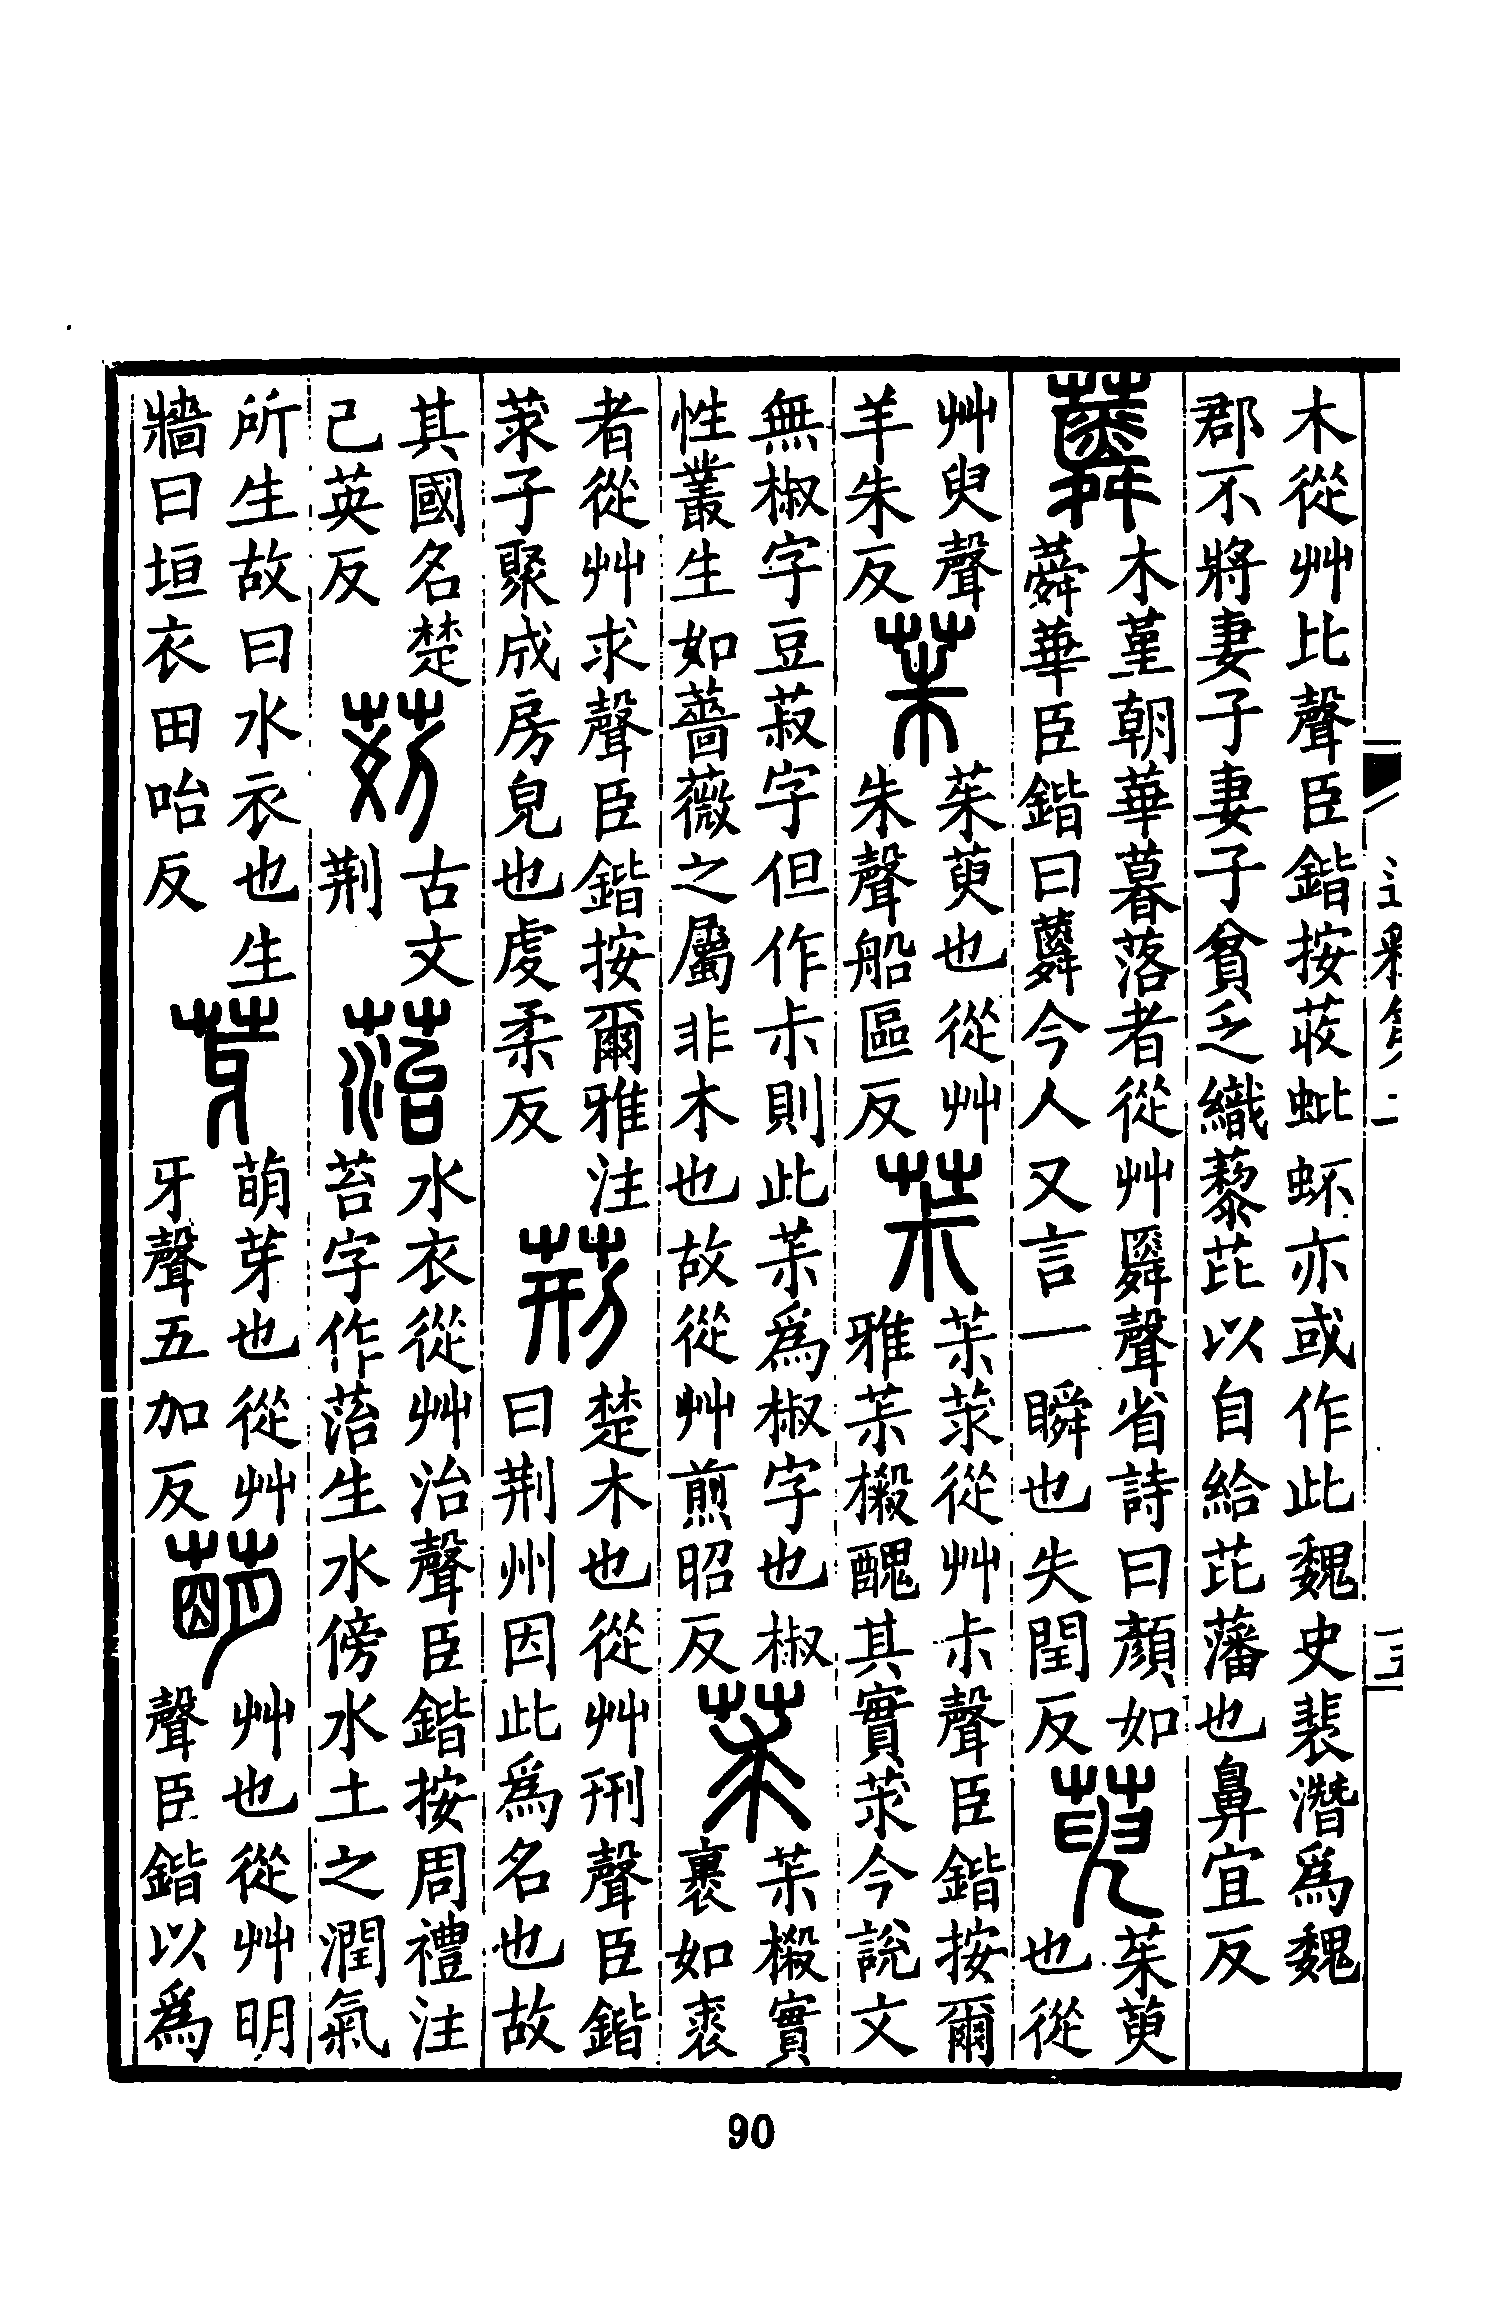 木從艸比聲臣鍇按荍蚍衃亦或作此魏史裴潛爲魏
郡不將妻子妻子貧乏織藜芘以自給芘藩也鼻宜反
蕣
木堇朝華暮落者從艸舜聲省詩曰顏如
蕣華臣鍇曰蕣今人又言一瞬也失閏反
萸
茱萸
也從
艸臾聲
羊朱反
茱
茱萸也從艸
朱聲船區反
茮
茮莍從艸尗聲臣鍇按爾
雅茮樧醜其實莍今說文
無椒字豆菽字但作尗則此茮爲椒字也椒
性叢生如薔薇之屬非木也故從艸煎昭反
莍
茮樧實
裹如裘
者從艸求聲臣鍇按爾雅注
莍子聚成房皃也虔柔反
荊
楚木也從艸刑聲臣鍇
曰荊州因此爲名也故
其國名楚
己英反
古文
荊
菭
水衣從艸治聲臣鍇按周禮注
苔字作菭生水傍水土之潤氣
所生故曰水衣也生
牆曰垣衣田咍反
芽
萌芽也從艸
牙聲五加反
萌
艸也從艸明
聲臣鍇以爲
90